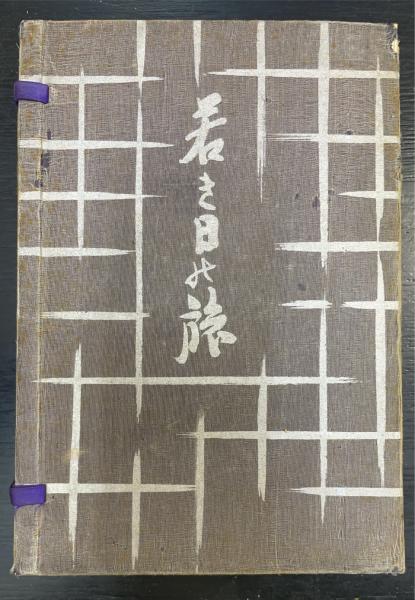 若き日の旅